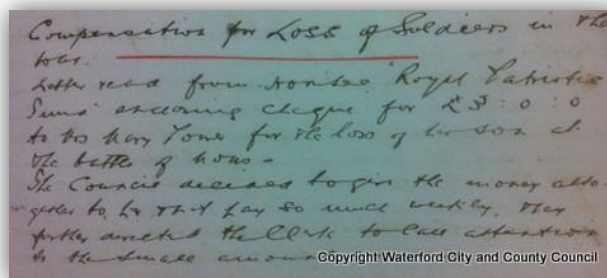 Compensation for Loss of Soldiers in the
War.
Letter read from Royal Patriotic
Fund enclosing cheque for £5 : 0 : 0
to Mrs Mary Power for the loss of her son at
the battle of Mons -
The Council decided to give the money alto
gether to her & not pay so much weekly. They
further directed the Clerk to call attention
to the small amount
Copyright Waterford City and County Council